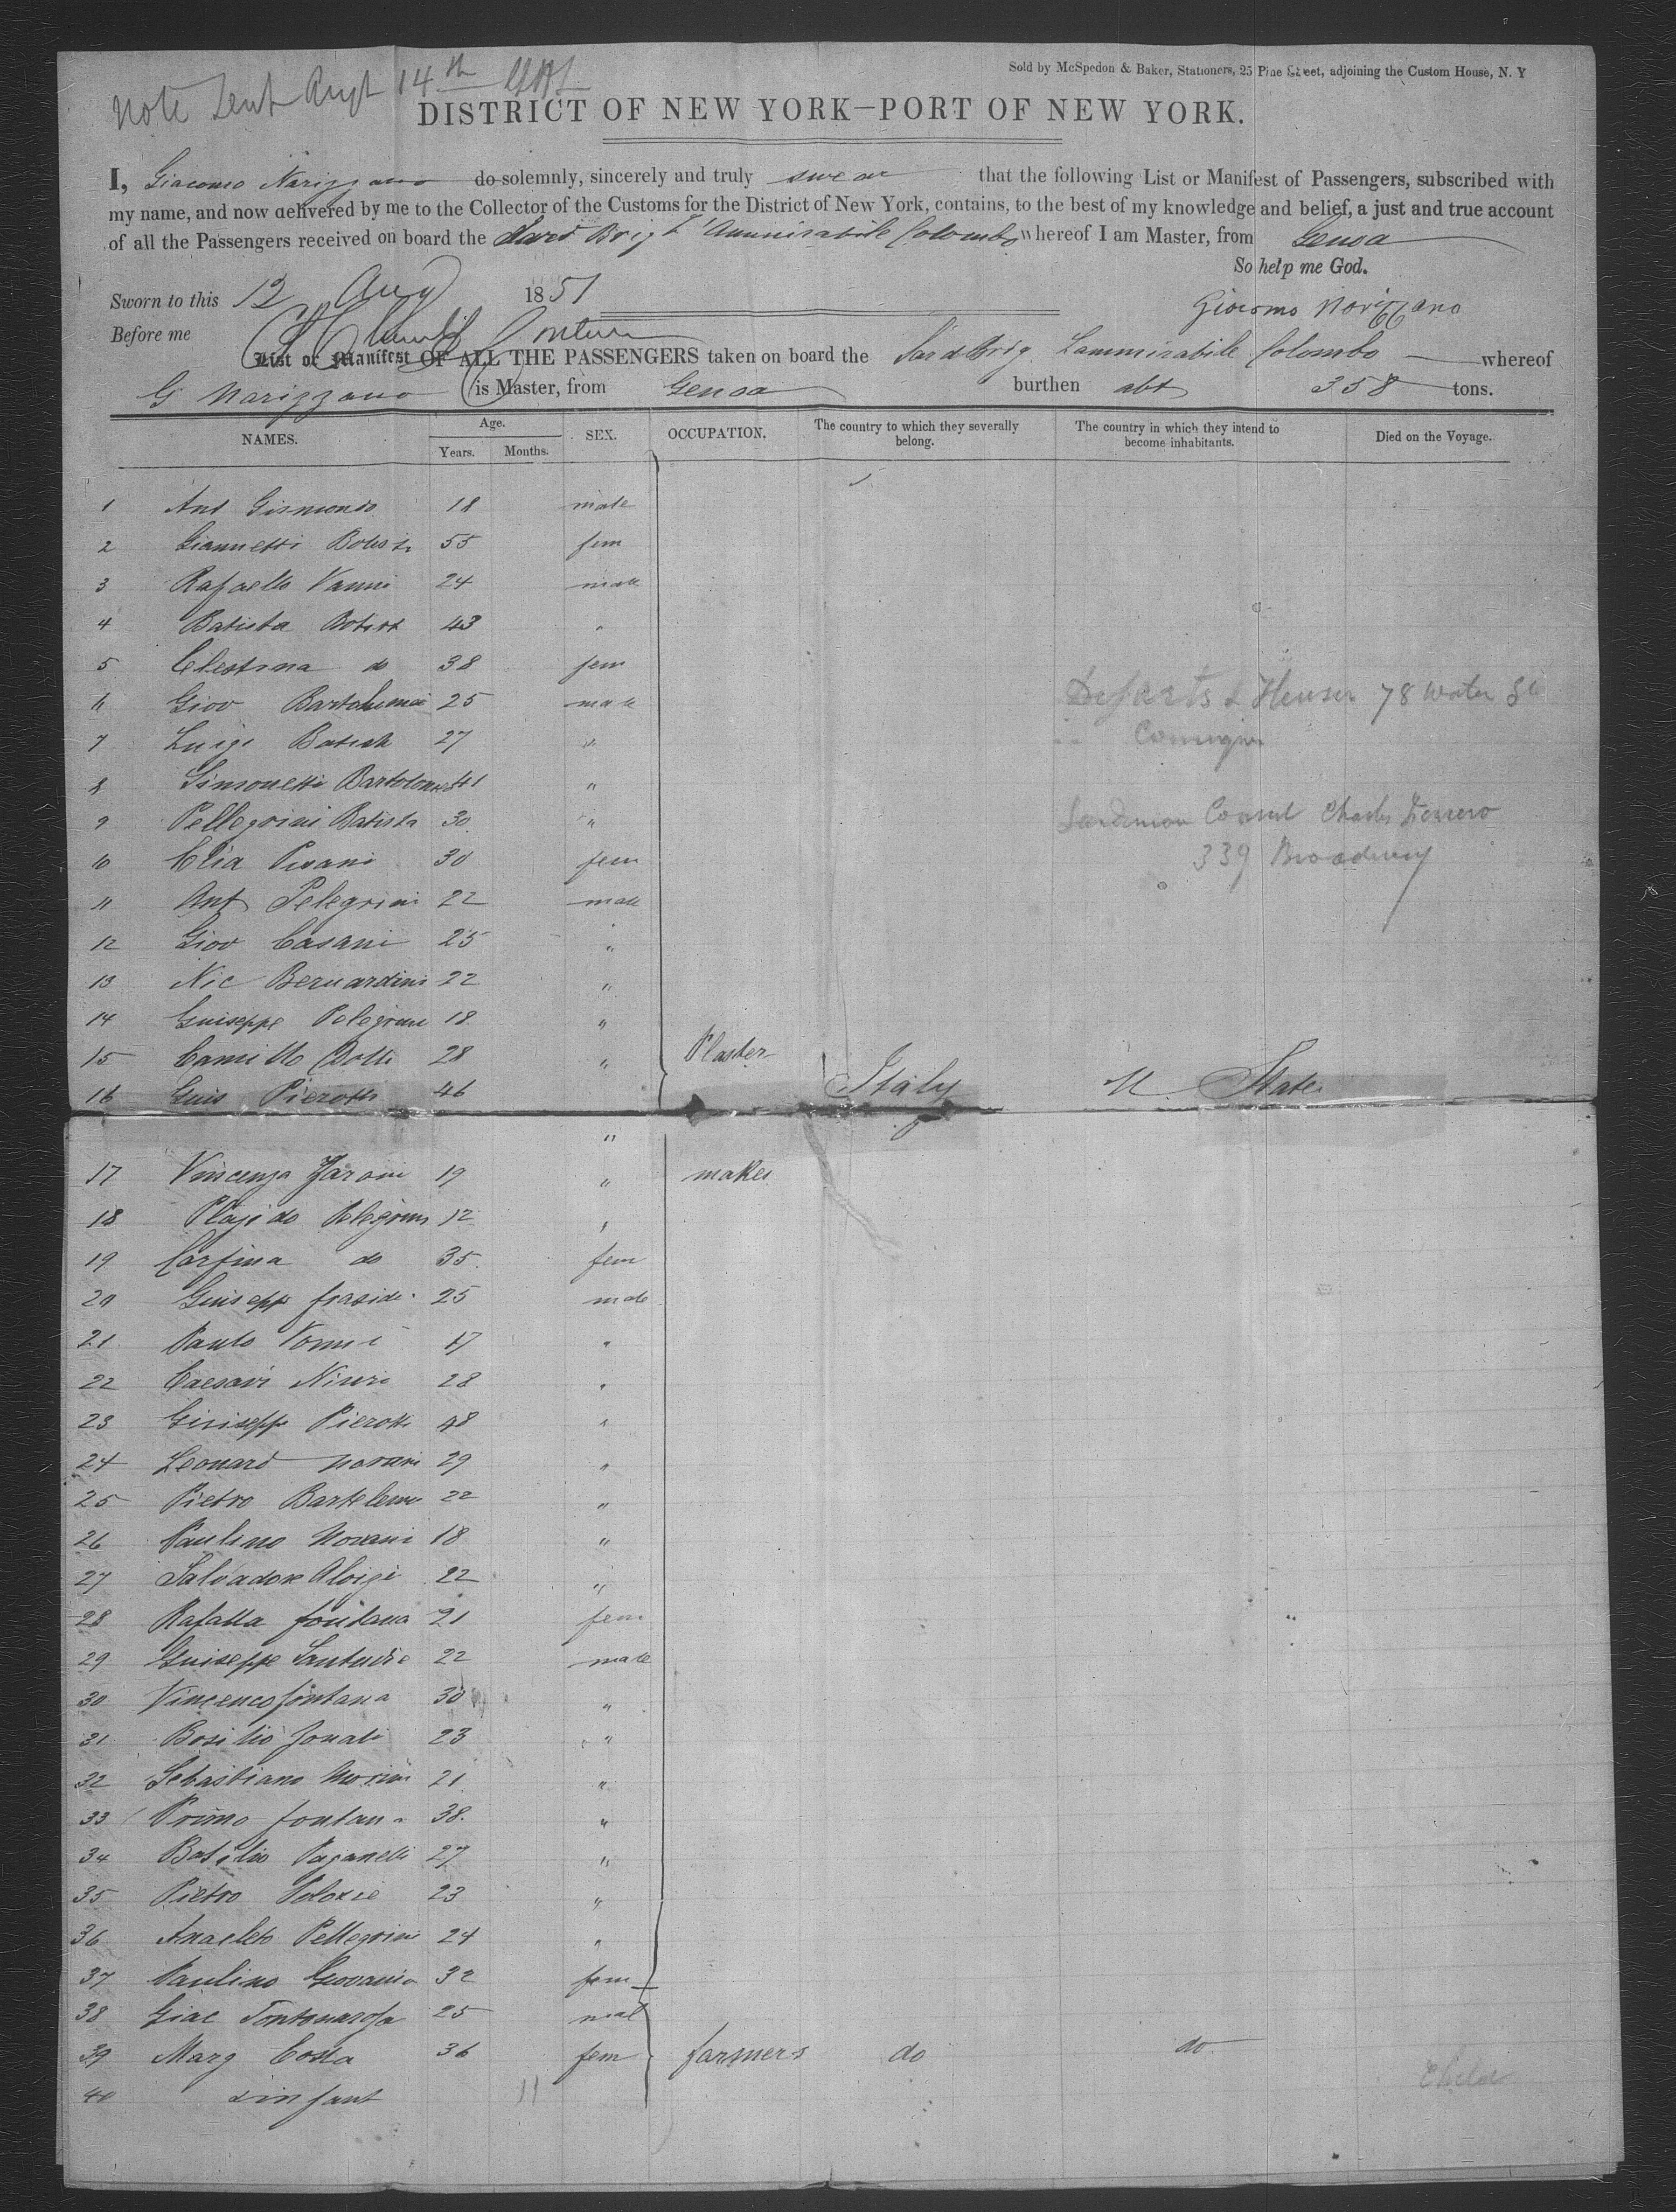 Sold by McSpedon & Baker, Stationers, 25 Pine Street, adjoining the Custom House, N. Y
Note Sent Augt 14th
DISTRICT OF NEW YORK—PORT OF NEW YORK.
I, Giacomo Narizzano do solemnly, sincerely and truly swear that the following List or Manifest of Passengers, subscribed with
my name, and now delivered by me to the Collector of the Customs for the District of New York, contains, to the best of my knowledge and belief, a just and true account
of all the Passengers received on board the Sard Brig L'Ammirabile Colombo whereof I am Master, from Genoa
So help me God.
Sworn to this 12 Aug 1851
Giacomo Narizzano
Before me
List or Manifest OF ALL THE PASSENGERS taken on board the Sard Brig Lammirabile Colombo whereof
G Narizzano is Master, from Genoa burthen abt 358 tons.
NAMES. Age. Years. Months. SEX. OCCUPATION. The country to which they severally belong. The country in which they intend to become inhabitants. Died on the Voyage.
1 Ant Gismondo 18 male
2 Giannetti 55 fem
3 Rafaello Vanni 24 male
4 Batista 43 "
5 Celestina do 38 fem
6 Giov Bartolumei 25 male
7 Luigi 27 "
Departs & Heuser 78 Water St
8 Simonetti Bartolome 41 "
9 Pellegrini Batista 30 "
Sardinian Consul Charles
10 Clia 30 fem
339 Broadway
11 Ant Pelegrini 22 male
12 Giov Casani 25 "
13 Nic Bernardini 22 "
14 Guiseppe Pelegrini 18 "
15 Camillo 28 " Plaster
16 Guis Pierotti 46 " Italy U. States
17 Vincenza 19 " makes
18 Pelegrini 12 "
19 Carfina do 35 fem
20 Guisepp 25 male
21 Paulo 17 "
22 Caesari 28 "
23 Giuseppe Pierotti 48 "
24 Leonard 29 "
25 Pietro Bartelemi 22 "
26 Paulino 18 "
27 Salvadore Aloigi 22 "
28 Rafalla fontana 21 fem
29 Guiseppe 22 male
30 Vincenco fontana 30 "
31 Bosilio 23 "
32 Sebastiano 21 "
33 Primo fontana 38 "
34 Basilio Paganelli 27 "
35 Pietro 23 "
36 Anacleto Pellegrini 24 "
37 Paulino 32 fem
38 Giac 25 mal
39 Marg Costa 36 fem farmers do do
40 & infant 11 Child